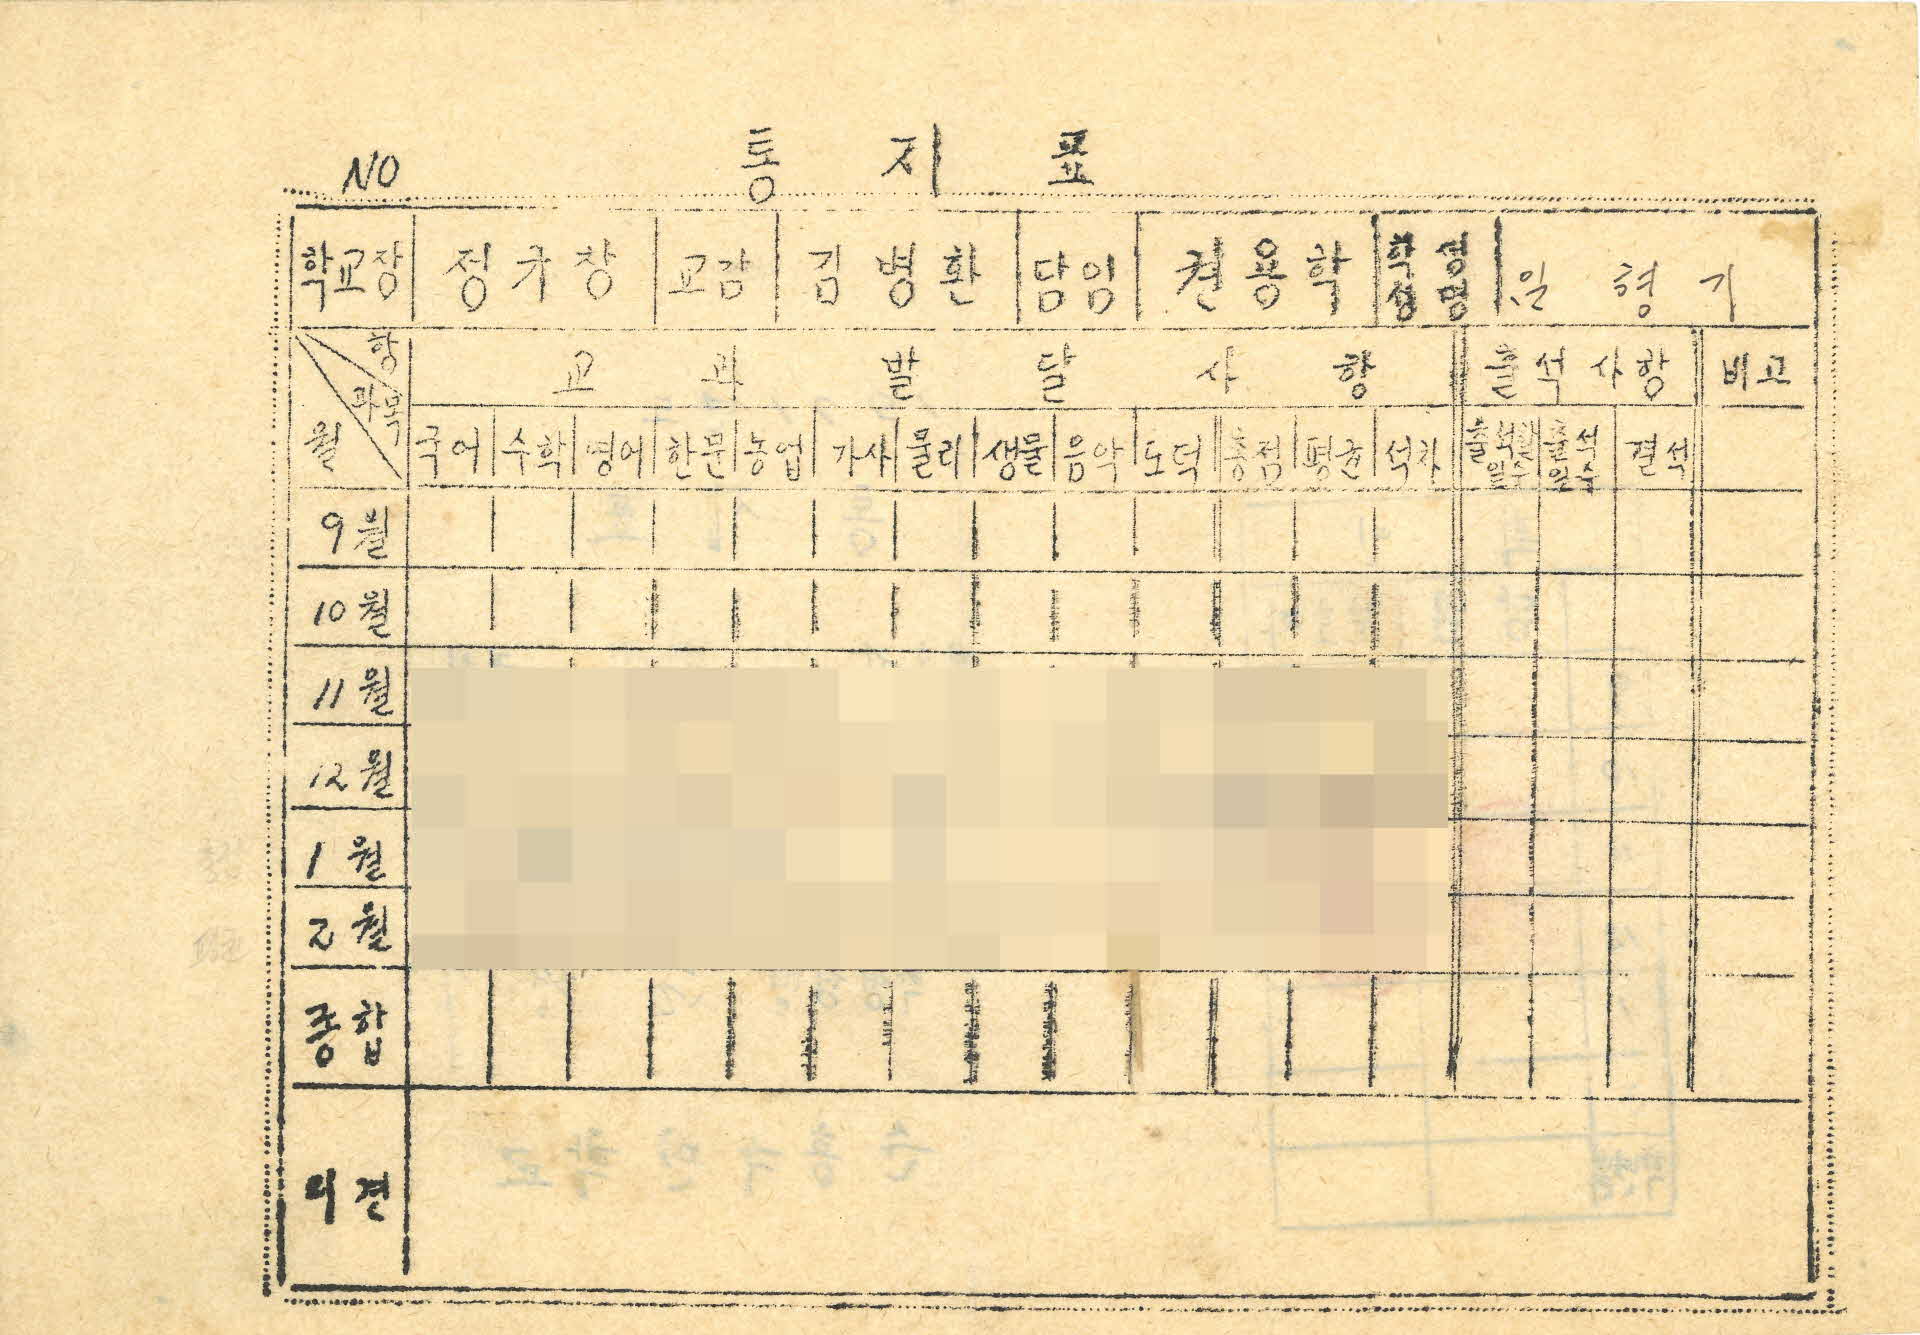 NO 통 지 표
학교장 정규창 교감 김병환 담임 권용학 학생성명 형기
항 교 과 발 달 사 항 출석사항 비고
과목
월 국어 수학 영어 한문 농업 가사 물리 생물 음악 도덕 총점 평균 석차 출석일수 결석
9월
10월
11월
12월
1월
2월
종합
의견